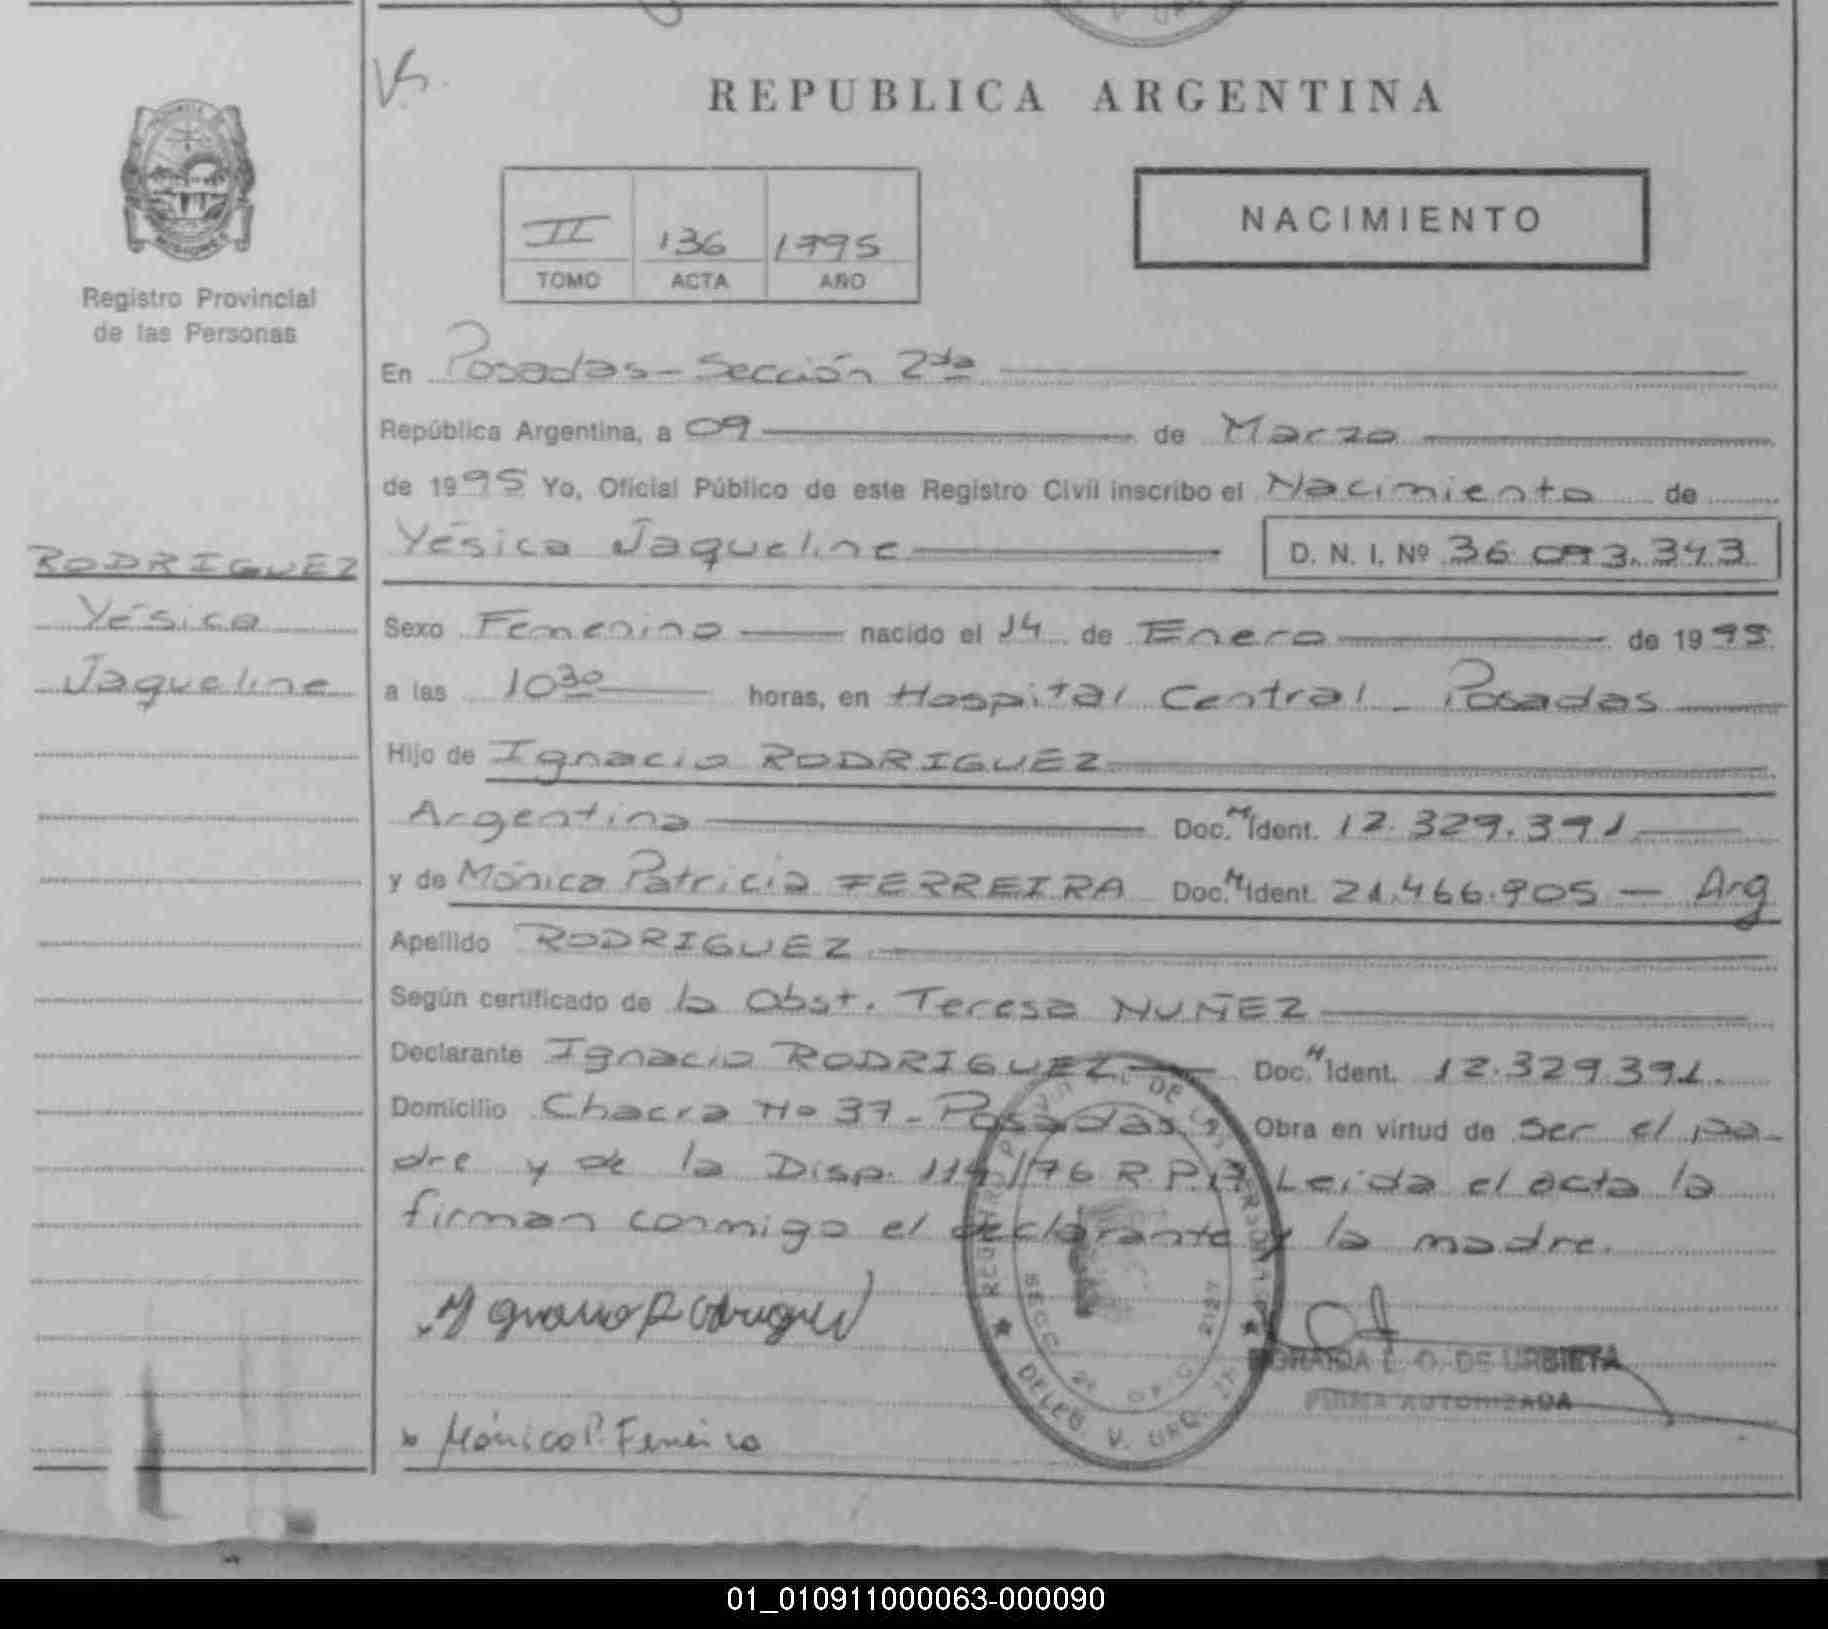 V. URQ
REPUBLICA ARGENTINA
II 136 1995
TOMO ACTA AÑO
NACIMIENTO
Registro Provincial
de las Personas
En Posadas - Sección 2da
República Argentina, a 09 de Marzo
de 1995 Yo, Oficial Público de este Registro Civil inscribo el Nacimiento de
Yésica Jaqueline D. N. I. Nº 36.093.343
RODRIGUEZ
Yésica
Jaqueline
Sexo Femenino nacido el 14 de Enero de 1995
a las 10 30 horas, en Hospital Central - Posadas
Hijo de Ignacio RODRIGUEZ
Argentina Doc. M Ident. 12.329.391
y de Mónica Patricia FERREIRA Doc. M Ident. 21.466.905 - Arg
Apellido RODRIGUEZ
Según certificado de la Obst. Teresa NUÑEZ
Declarante Ignacio RODRIGUEZ Doc. M Ident. 12.329.391.
Domicilio Chacra Nº 37 - Posadas. Obra en virtud de ser el pa-
dre y de la Disp. 114/76 R.P.P. Leida el acta la
firman conmigo el declarante y la madre.
REGISTRO PROVINCIAL DE LAS PERSONAS
SECC 2ª OFIC 2127
DELEG. V. URQ.
L. O. DE URBIETA
FIRMA AUTORIZADA
Mónica P. Ferreira
01_010911000063-000090